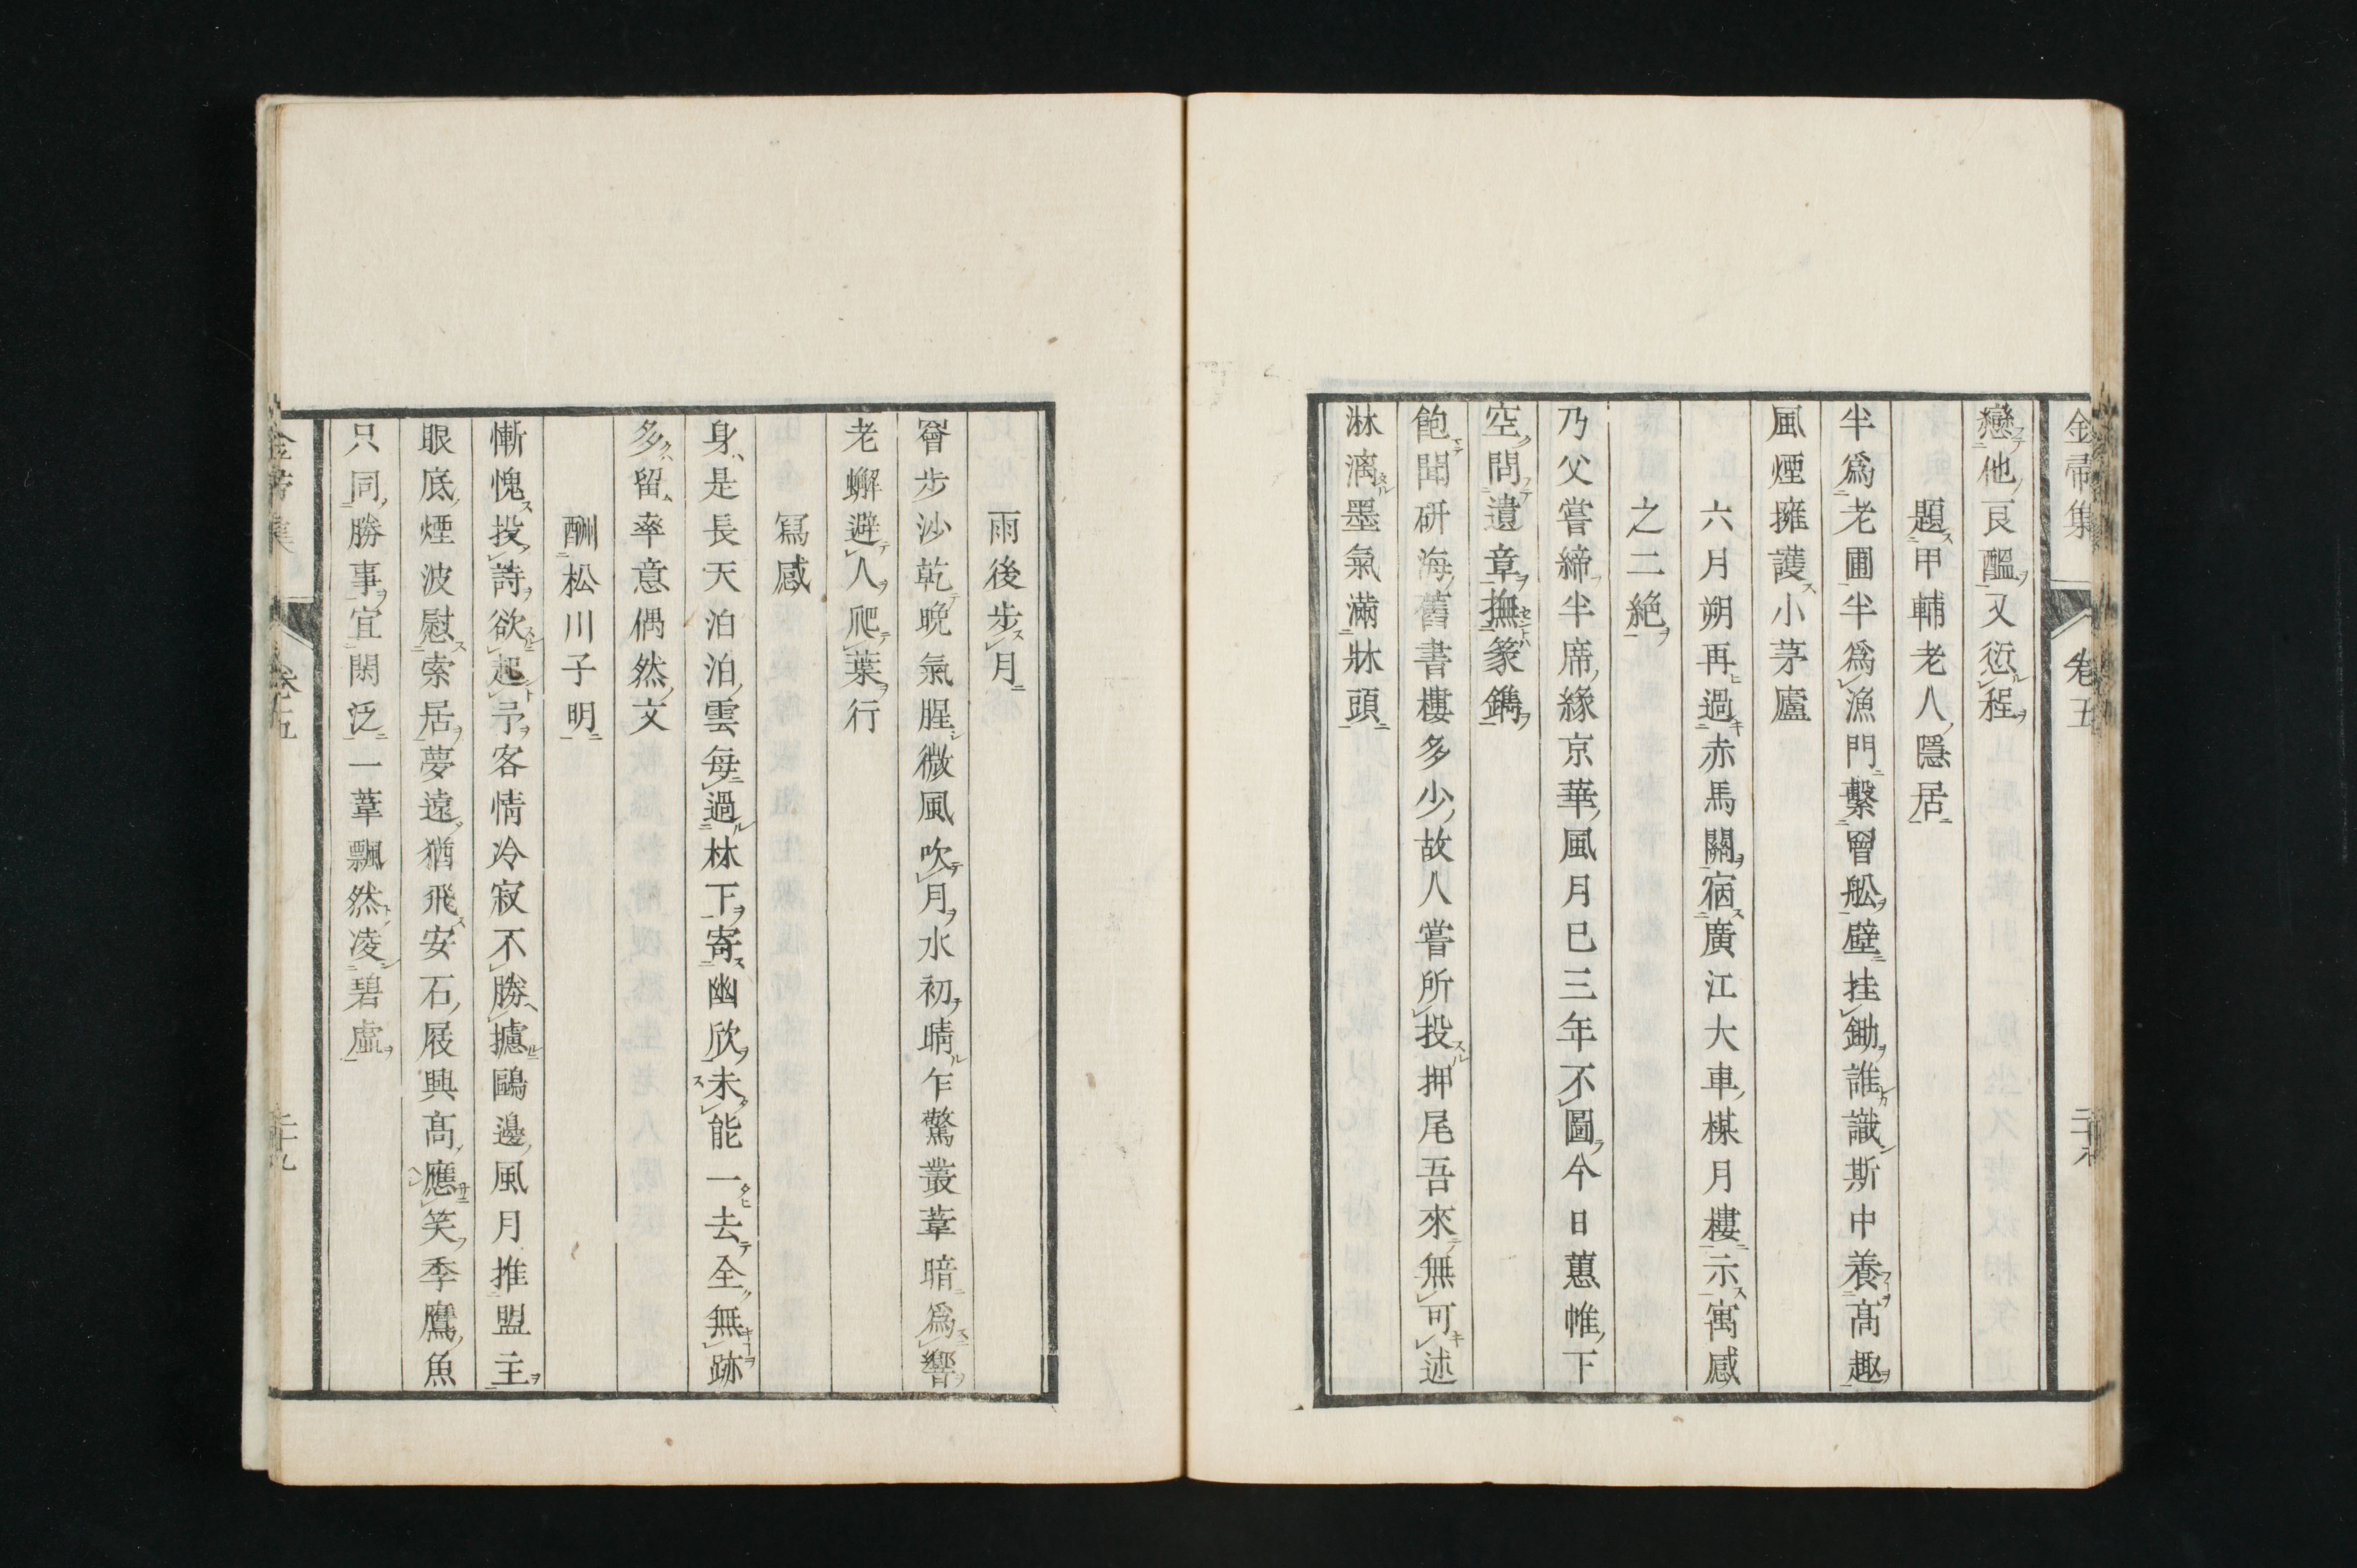 金帚集 卷五
戀他良醞又愆程
題甲輔老人隱居
半爲老圃半爲漁門繫罾舩壁挂鋤誰識斯中養髙趣
風煙擁護小茅廬
六月朔再過赤馬關宿廣江大車楳月樓示寓感
之二絶
乃父嘗締半席緣京華風月已三年不圖今日蕙帷下
空問遺章撫篆鐫
飽聞硏海舊書樓多少故人嘗所投押尾吾來無可述
淋漓墨氣滿牀頭
雨後步月
罾步沙乾晩氣腥微風吹月水初晴乍驚叢葦暗爲響
老蠏避人爬葉行
冩感
身是長天泊泊雲每過林下寄幽欣未能一去全無跡
多留率意偶然文
酬松川子明
慚愧投詩欲起予客情冷寂不勝攄鷗邊風月推盟主
眼底煙波慰索居夢遠猶飛安石屐興髙應笑季鷹魚
只同勝事宜閑泛一葦飄然凌碧虛
集 卷五 二十九